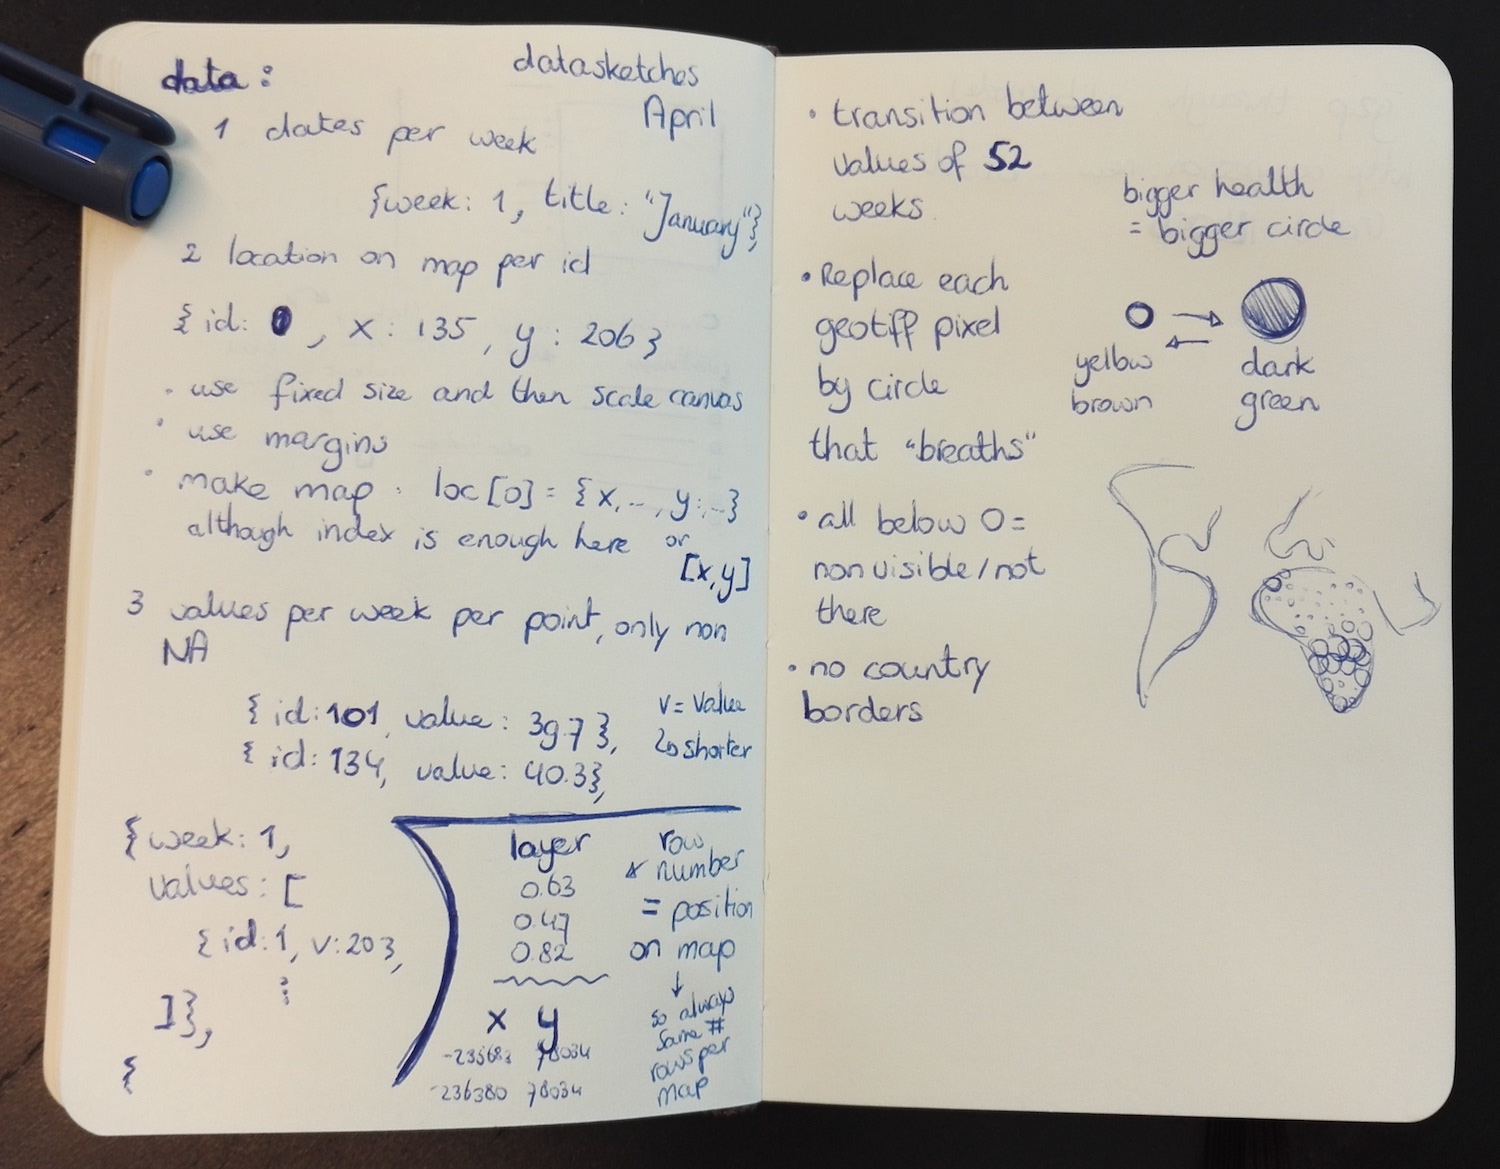 datasketches
April
data:
1 dates per week
{week: 1, title: "January"},
2 location on map per id
{id: 0, x: 135, y: 206}
· use fixed size and then scale canvas
· use margins
· make map · loc[0] = {x,.., y:..}
although index is enough here or
[x,y]
3 values per week per point, only non
NA
{id:101, value: 397},
{id:134, value: 40.3},
v = value
↳ shorter
{week: 1,
values: [
{id:1, v:203,
⋮
]},
{
layer
0.63
0.47
0.82
x y
78034
-236380 78034
row
number
= position
on map
↓
so always
same #
rows per
map
• transition between
values of 52
weeks.
• Replace each
geotiff pixel
by circle
that "breaths"
• all below 0 =
non visible/not
there
• no country
borders
bigger health
= bigger circle
yellow
brown
dark
green